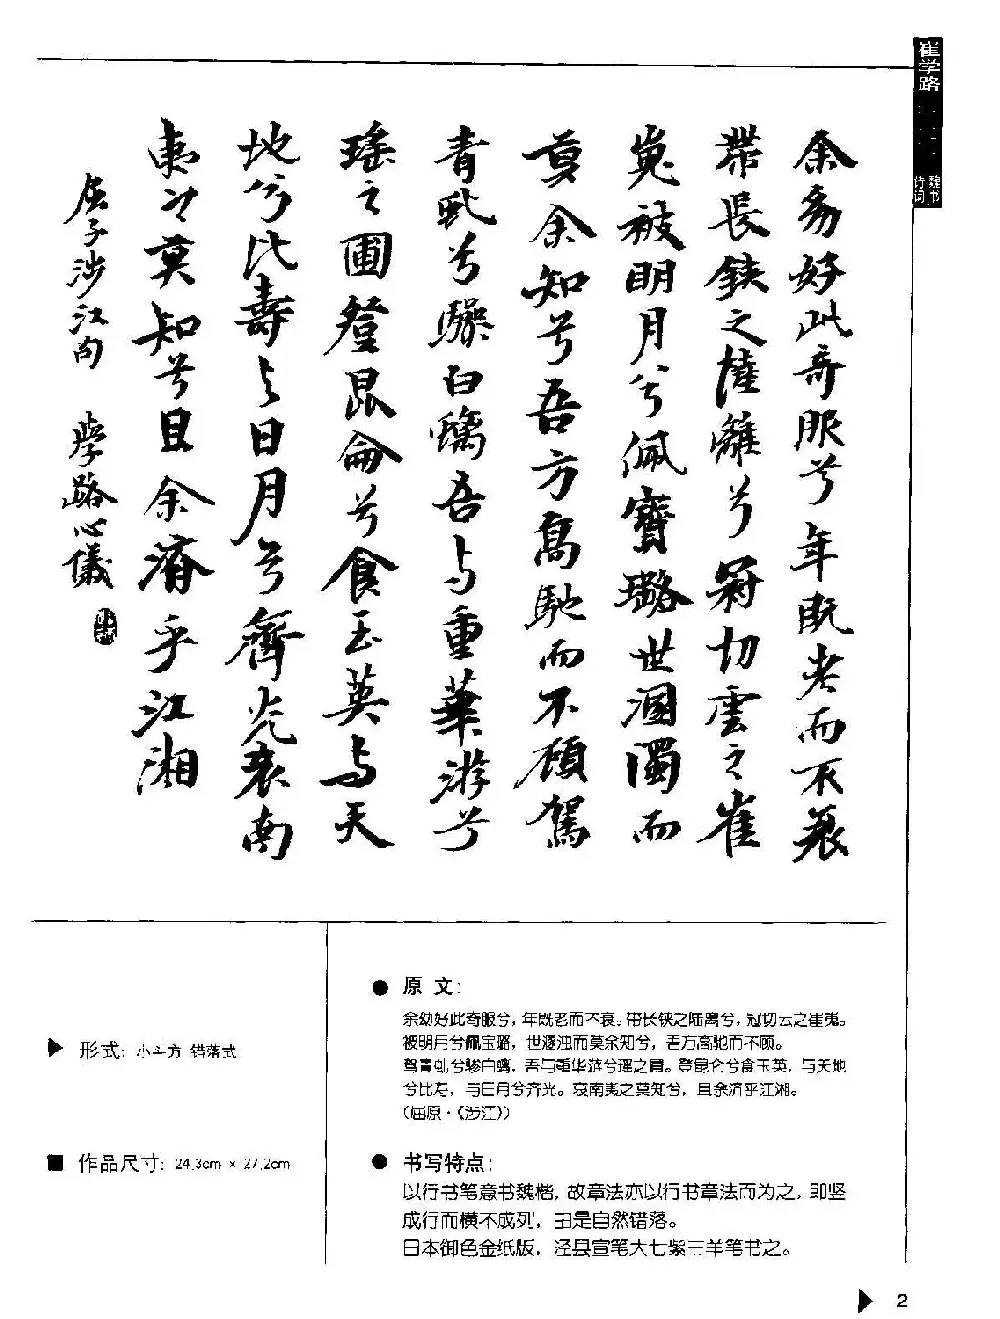 崔学路
魏书
诗词
余幼好此奇服兮年既老而不衰
带长铗之陆离兮冠切雲之崔
嵬被明月兮佩寶璐世溷濁而
莫余知兮吾方高馳而不顧駕
青虬兮驂白螭吾与重華游兮
瑤之圃登崑侖兮食玉英与天
地兮比壽与日月兮齊光哀南
夷之莫知兮旦余濟乎江湘
屈子涉江句 學路心儀
形式：小斗方 错落式
作品尺寸：24.3cm × 27.2cm
原文：
余幼好此奇服兮，年既老而不衰。带长铗之陆离兮，冠切云之崔嵬。
被明月兮佩宝璐，世溷浊而莫余知兮，吾方高驰而不顾。
驾青虬兮骖白螭，吾与重华游兮瑶之圃。登昆仑兮食玉英，与天地
兮比寿，与日月兮齐光。哀南夷之莫知兮，旦余济乎江湘。
（屈原·《涉江》）
书写特点：
以行书笔意书魏楷，故章法亦以行书章法而为之，即竖
成行而横不成列，于是自然错落。
日本御色金纸版，泾县宣笔大七紫三羊笔书之。
2